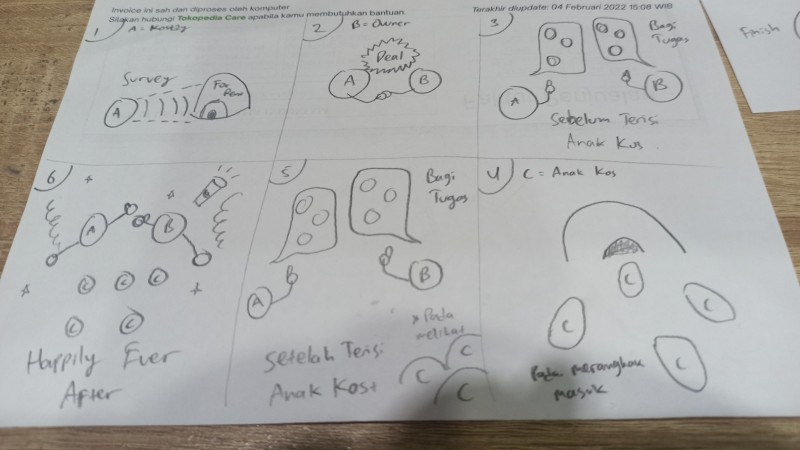 Invoice ini sah dan diproses oleh komputer
Silakan hubungi Tokopedia Care apabila kamu membutuhkan bantuan.
Terakhir diupdate: 04 Februari 2022 15:08 WIB
Finish
1
Survey
A
For Rent
2
B = Owner
Deal
A
B
3
Bagi
Tugas
A
B
Sebelum Terisi
Anak Kos
4
C = Anak Kos
C
C
C
C
Pada merangkak
masuk
5
Bagi
Tugas
A
B
Setelah Terisi
Anak Kost
* Pada
melihat
C
C
C
6
A
B
C
C
C
C
C
Happily Ever
After